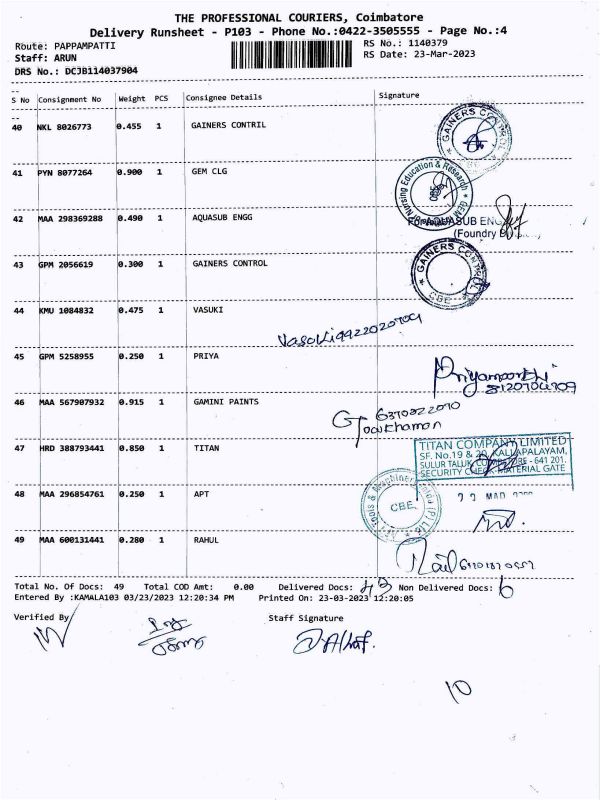 THE PROFESSIONAL COURIERS, Coimbatore
Delivery Runsheet - P103 - Phone No.:0422-3505555 - Page No.:4
Route: PAPPAMPATTI
RS No.: 1140379
Staff: ARUN
RS Date: 23-Mar-2023
DRS No.: DCJB114037904
S No Consignment No Weight PCS Consignee Details Signature
40 NKL 8026773 0.455 1 GAINERS CONTRIL
GAINERS CONTROL
41 PYN 8077264 0.900 1 GEM CLG
Nursing Education & Research * GEM
CBE
42 MAA 298369288 0.490 1 AQUASUB ENGG
For AQUASUB ENG
(Foundry D
43 GPM 2056619 0.300 1 GAINERS CONTROL
GAINERS CONTROL
CBE
44 KMU 1084832 0.475 1 VASUKI
Vasuki 9922020704
45 GPM 5258955 0.250 1 PRIYA
Priyamoorthi
8120704709
46 MAA 567907932 0.915 1 GAMINI PAINTS
6370822010
47 HRD 388793441 0.850 1 TITAN
TITAN COMPANY LIMITED
SF. No.19 & 20, KALLAPALAYAM,
SULUR TALUK, COIMBATORE - 641 201.
SECURITY CHECK MATERIAL GATE
48 MAA 296854761 0.250 1 APT
Tools & Machinery India (P) Ltd
CBE
49 MAA 600131441 0.280 1 RAHUL
Total No. Of Docs: 49 Total COD Amt: 0.00 Delivered Docs: 43 Non Delivered Docs: 6
Entered By :KAMALA103 03/23/2023 12:20:34 PM Printed On: 23-03-2023 12:20:05
Verified By Staff Signature
10